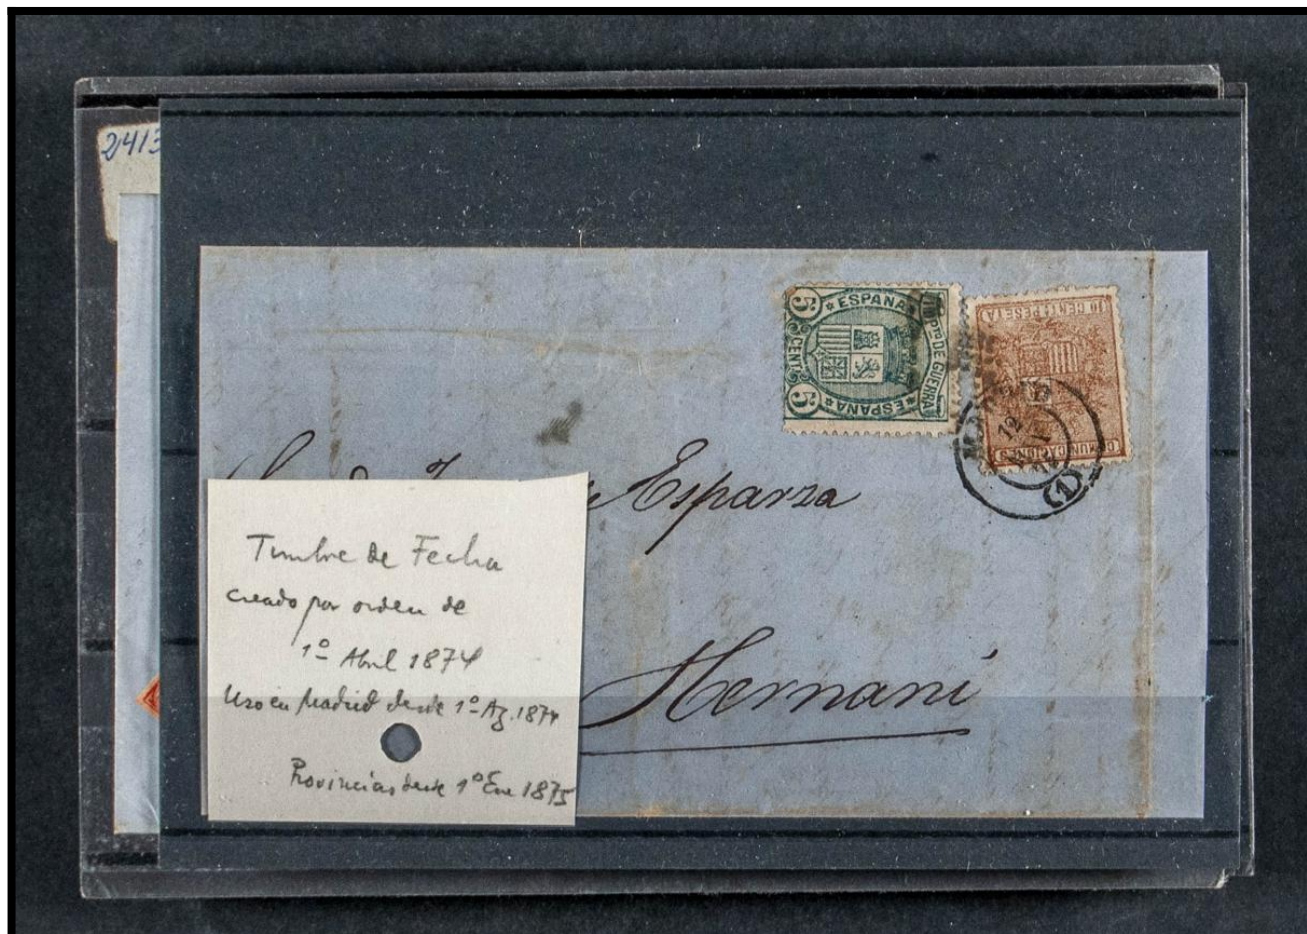 2413
ESPAÑA
IMPTO DE GUERRA
5 CENT. 5
ESPAÑA
10 CENT PESETA
COMUNICACIONES
12
(1)
Esparza
Hernani
Timbre de Fecha
creado por orden de
1º Abril 1874
Uso en Madrid desde 1º Ag. 1874
Provincias desde 1º Ene 1875